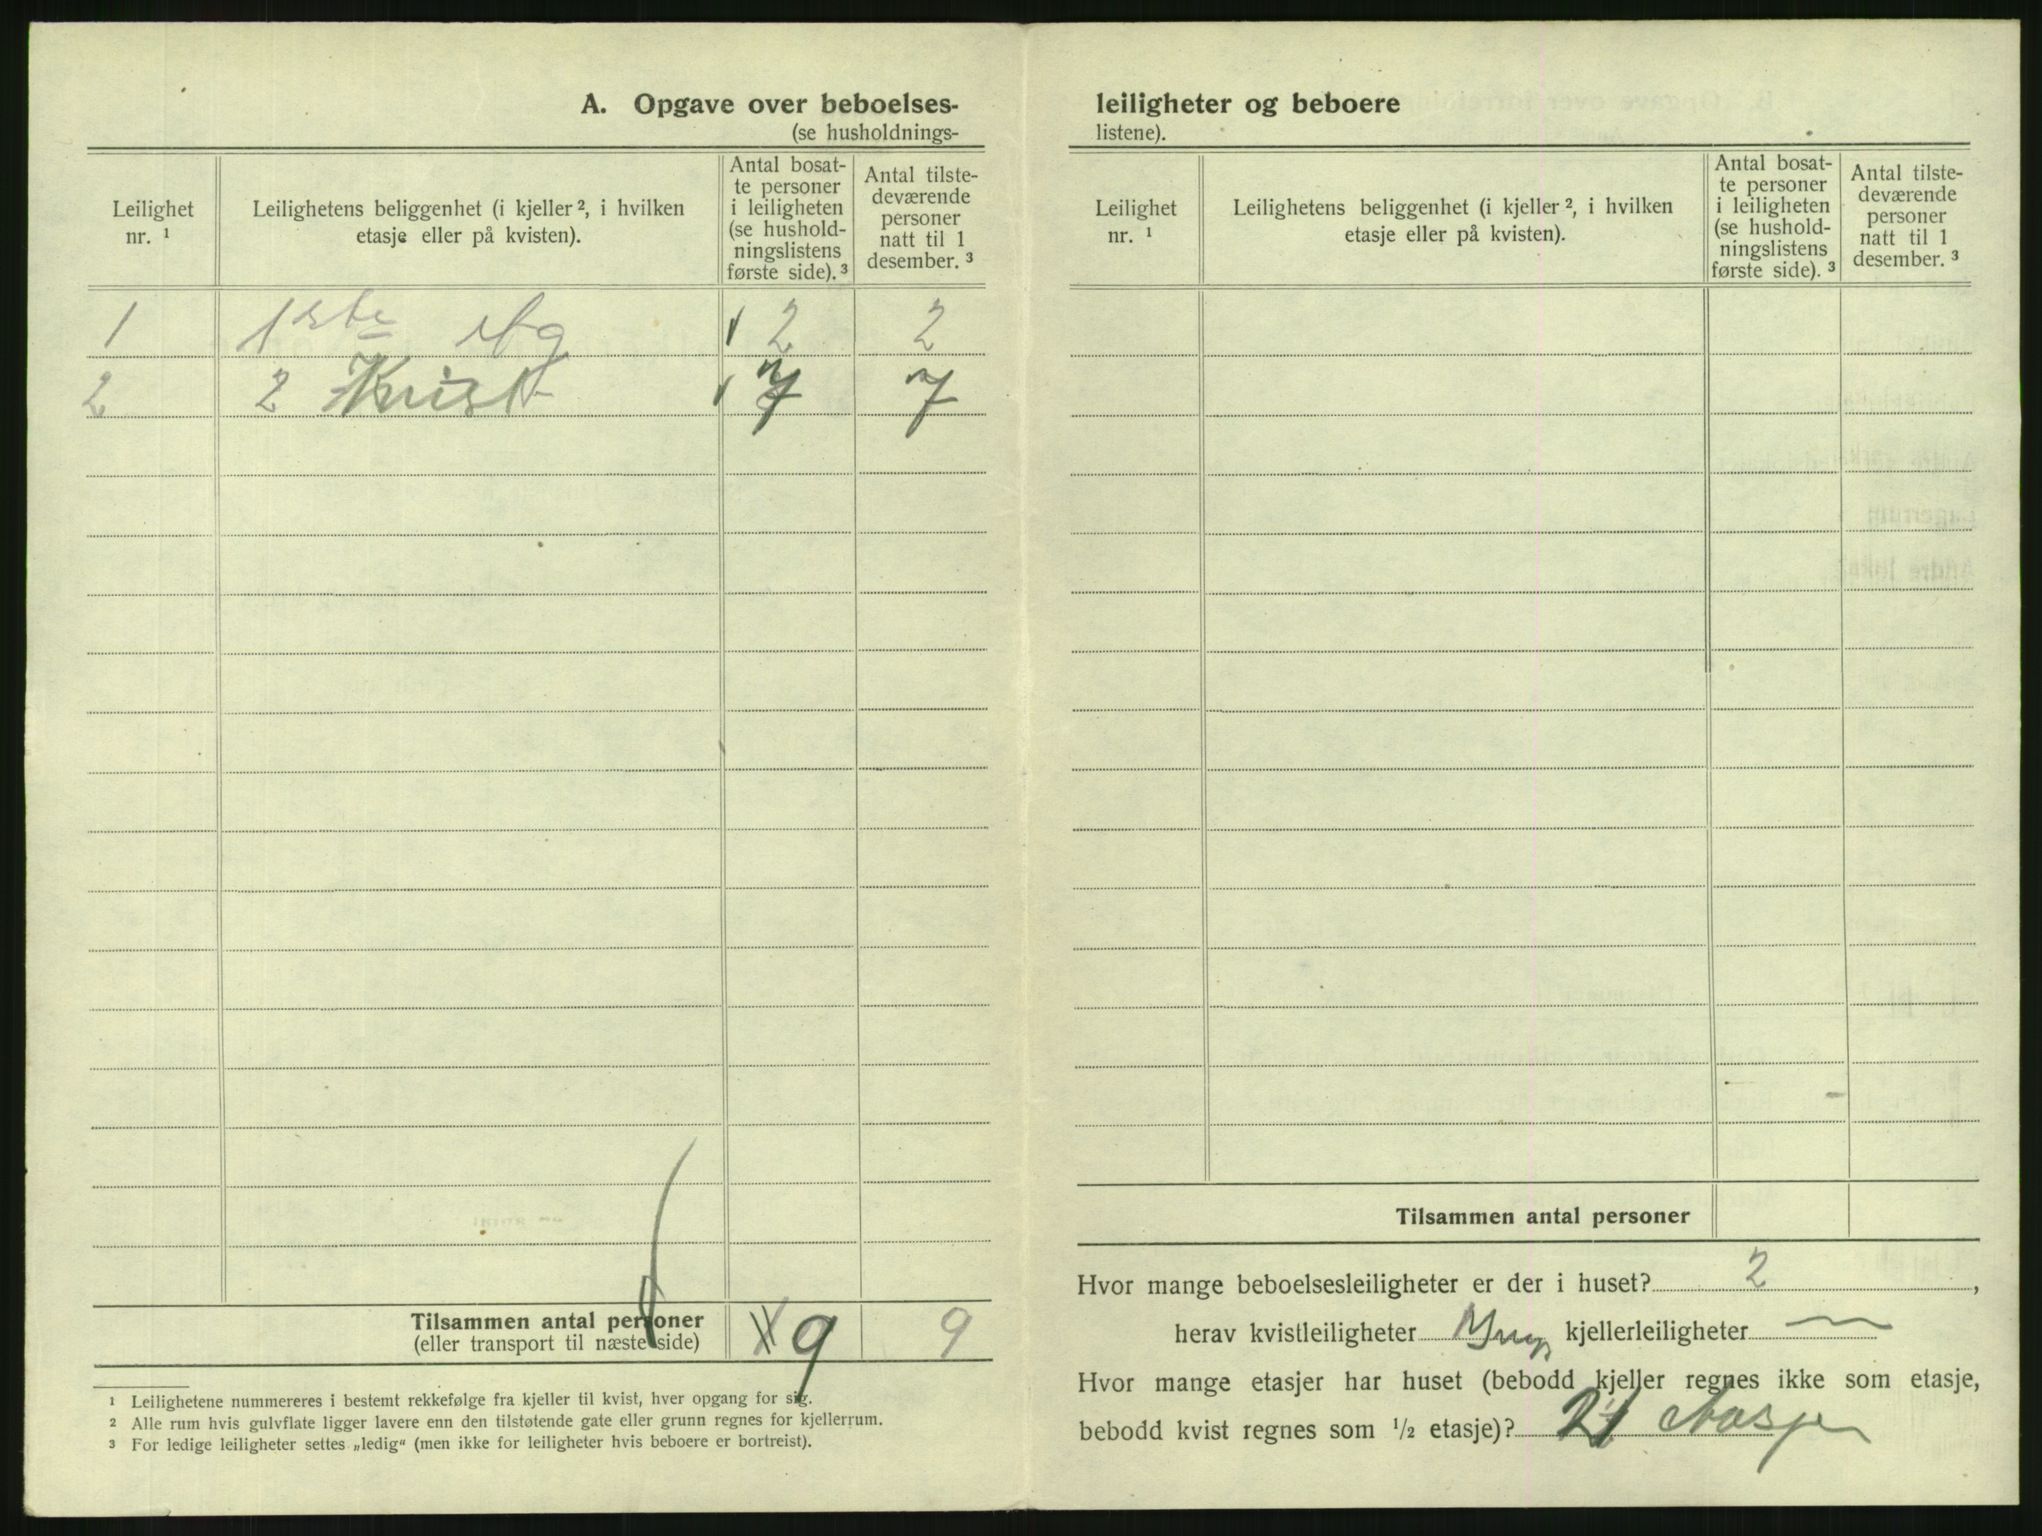 A. Opgave over beboelses-
(se husholdnings-
Leilighet nr. ¹
Leilighetens beliggenhet (i kjeller ², i hvilken
etasje eller på kvisten).
Antal bosat-
te personer
i leiligheten
(se hushold-
ningslistens
første side). ³
Antal tilste-
deværende
personer
natt til 1
desember. ³
1 1ste 2 2
2 2 Kvist 7 7
Tilsammen antal personer 9 9
(eller transport til næste side)
¹ Leilighetene nummereres i bestemt rekkefølge fra kjeller til kvist, hver opgang for sig.
² Alle rum hvis gulvflate ligger lavere enn den tilstøtende gate eller grunn regnes for kjellerrum.
³ For ledige leiligheter settes „ledig“ (men ikke for leiligheter hvis beboere er bortreist).
leiligheter og beboere
listene).
Leilighet
nr. ¹
Leilighetens beliggenhet (i kjeller ², i hvilken
etasje eller på kvisten).
Antal bosat-
te personer
i leiligheten
(se hushold-
ningslistens
første side). ³
Antal tilste-
deværende
personer
natt til 1
desember. ³
Tilsammen antal personer
Hvor mange beboelsesleiligheter er der i huset? 2,
herav kvistleiligheter kjellerleiligheter —
Hvor mange etasjer har huset (bebodd kjeller regnes ikke som etasje,
bebodd kvist regnes som ½ etasje)?